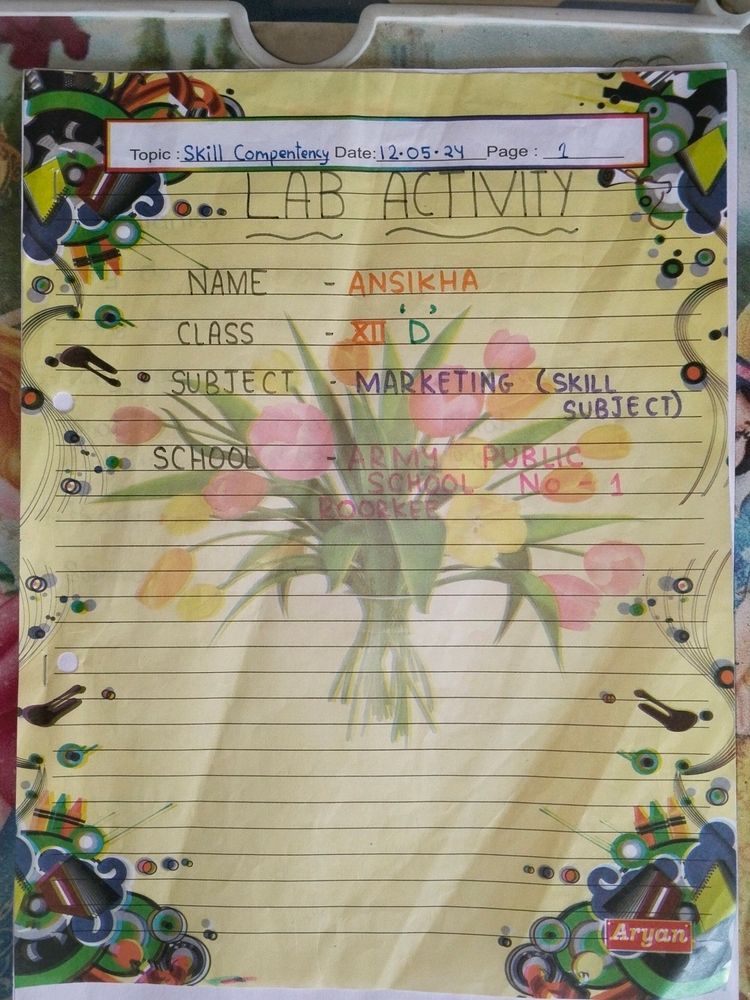 Topic : Skill Compentency Date: 12.05.24 Page : 1
LAB ACTIVITY
NAME - ANSIKHA
CLASS - XII 'D'
SUBJECT - MARKETING (SKILL
SUBJECT)
SCHOOL - ARMY PUBLIC
SCHOOL No - 1
ROORKEE
Aryan